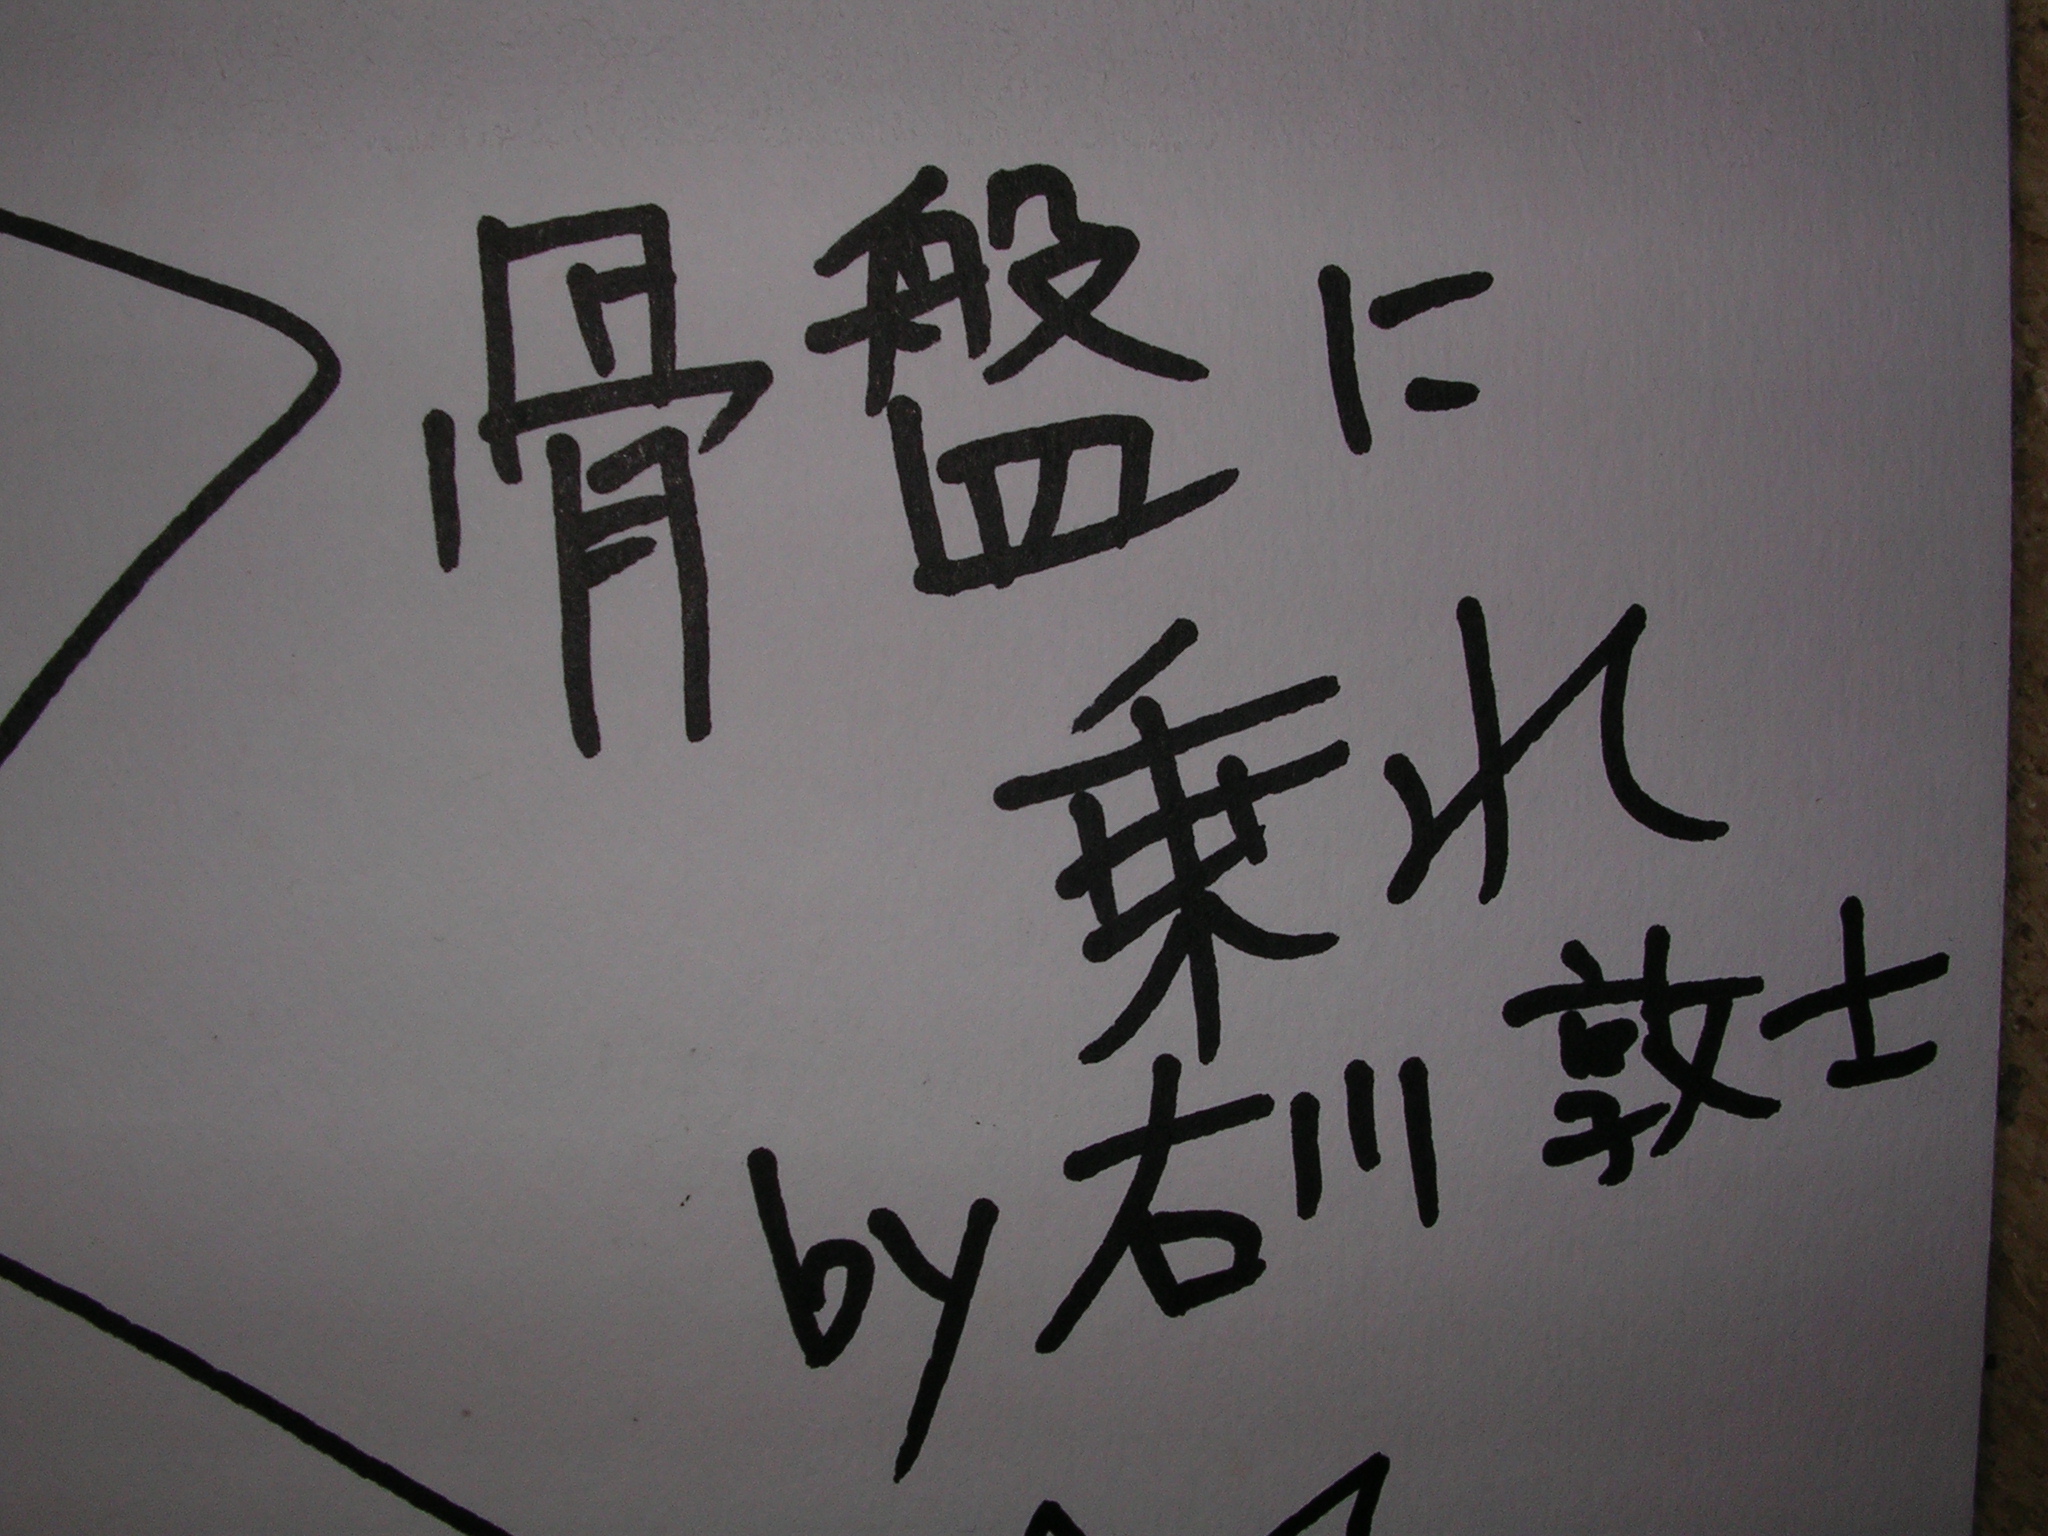 骨盤に
乗れ
by石川 敦士